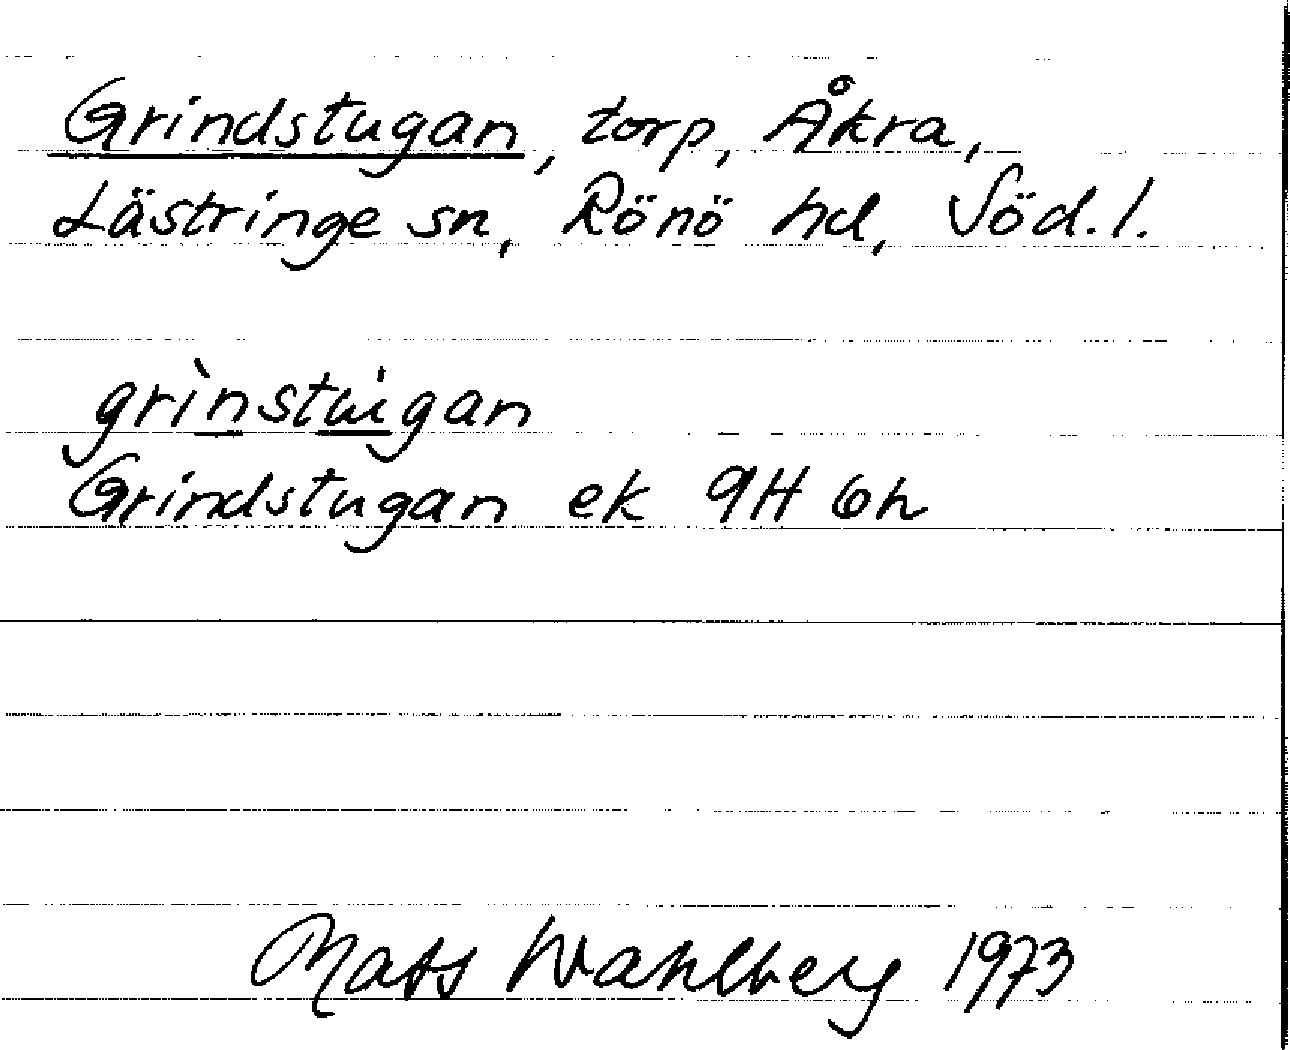 Grindstugan, torp, Åkra,
Lästringe sn, Rönö hd, Söd.l.
grìnstùgan
Grindstugan ek 9H 6h
Mats Wahlberg 1973